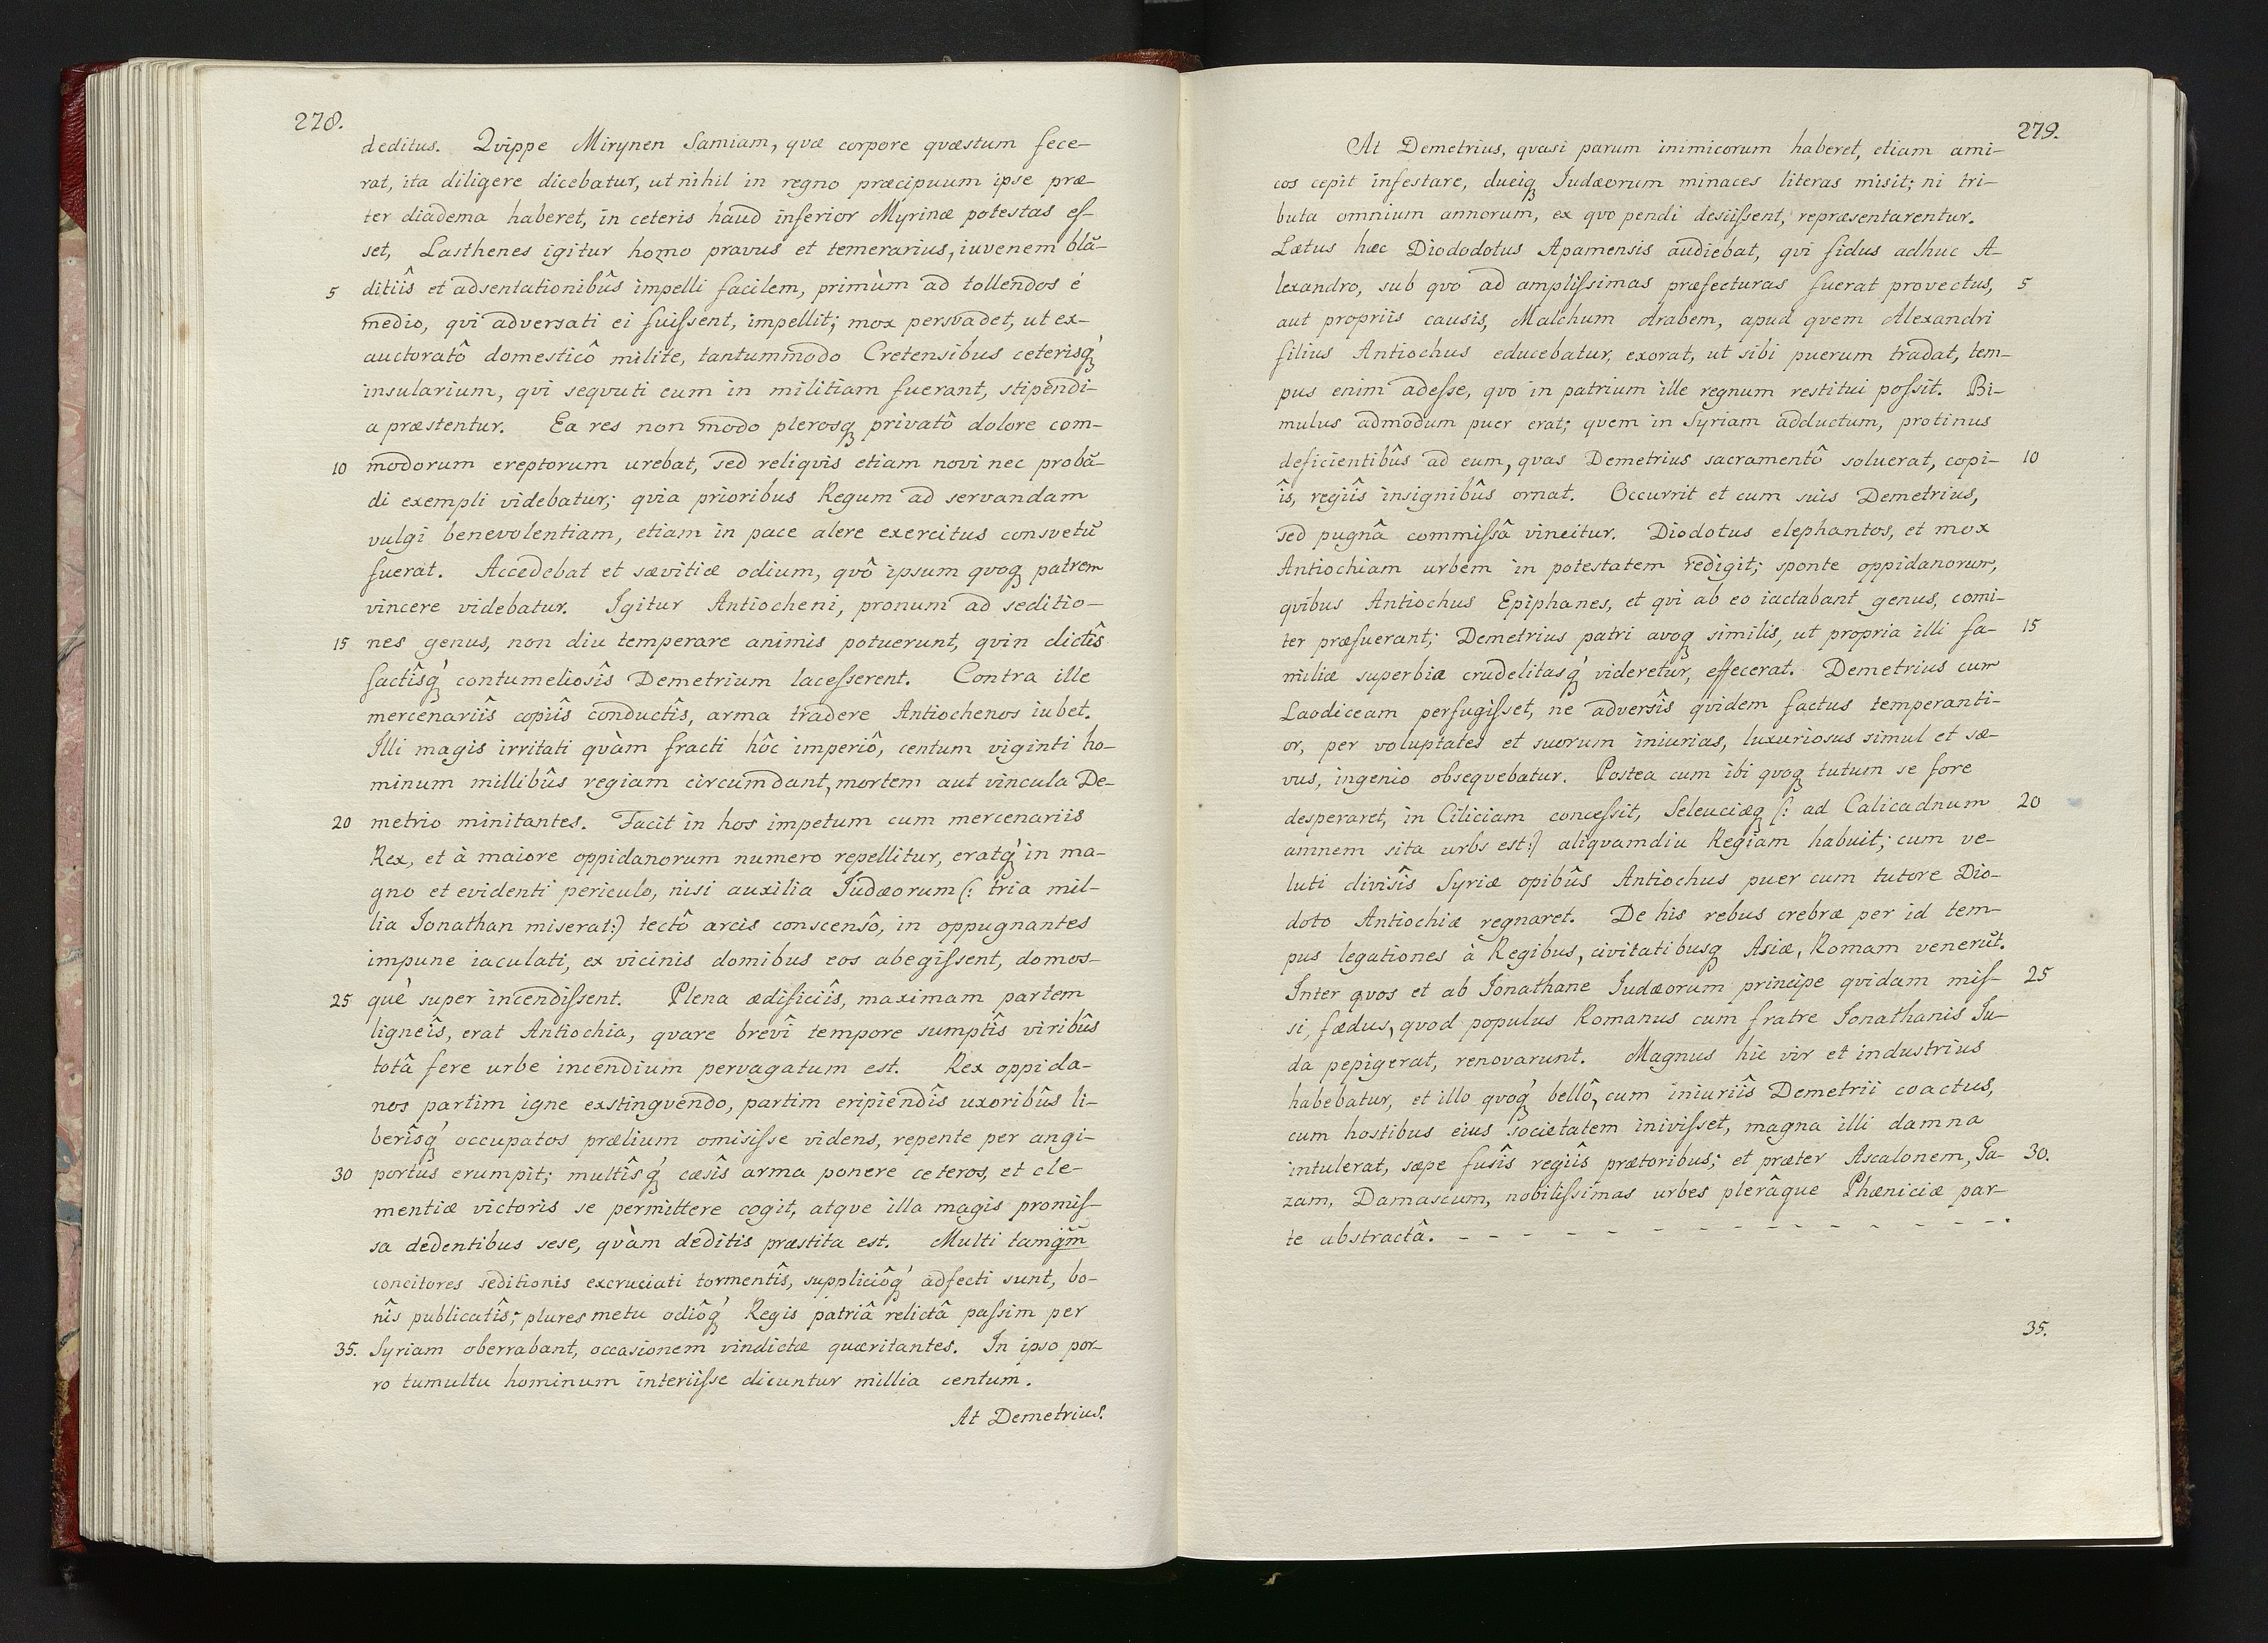 278.
deditus. Qvippe Mirynen Samiam, qvæ corpore qvæstum fece-
rat, ita diligere dicebatur, ut nihil in regno præcipuum ipse præ-
ter diadema haberet, in ceteris haud inferior Myrinæ potestas eſ-
set, Lasthenes igitur homo pravus et temerarius, iuvenem blā-
5 ditiîs et adsentationibûs impelli facilem, primùm ad tollendos é
medio, qvi adversati ei fuiſsent, impellit; mox persvadet, ut ex-
auctoratô domesticô milite, tantummodo Cretensibus ceterisq́ꝫ
insularium, qvi seqvuti eum in militiam fuerant, stipendi-
a præstentur. Ea res non modo plerosqꝫ privatô dolore com-
10 modorum ereptorum urebat, sed reliqvis etiam novi nec probā-
di exempli videbatur; qvia prioribus Regum ad servandam
vulgi benevolentiam, etiam in pace alere exercitus consvetū
fuerat. Accedebat et sævitiæ odium, qvô ipsum qvoqꝫ patrem
vincere videbatur. Igitur Antiocheni, pronum ad seditio-
15 nes genus, non diu temperare animis potuerunt, qvin dictîs
factîsq́ꝫ contumeliosîs Demetrium laceſserent. Contra ille
mercenariîs copiîs conductîs, arma tradere Antiochenos iubet.
Illi magis irritati qvàm fracti hôc imperiô, centum viginti ho-
minum millibûs regiam circumdant, mortem aut vincula De-
20 metrio minitantes. Facit in hos impetum cum mercenariis
Rex, et à maiore oppidanorum numero repellitur, eratq́ꝫ in ma-
gno et evidenti periculo, nisi auxilia Iudæorum (: tria mil-
lia Ionathan miserat:) tectô arcis conscensô, in oppugnantes
impune iaculati, ex vicinis domibus eos abegiſsent, domos-
25 què super incendiſsent. Plena ædificiîs, maximam partem
ligneîs, erat Antiochia, qvare brevî tempore sumptîs viribûs
totâ fere urbe incendium pervagatum est. Rex oppida-
nos partim igne exstingvendo, partim eripiendîs uxoribûs li-
berîsq́ꝫ occupatos prælium omisiſse videns, repente per angi-
30 portûs erumpit; multîsq́ꝫ cæsîs arma ponere ceteros, et cle-
mentiæ victoris se permittere cogit, atqve illa magis promiſ-
sa dedentibus sese, qvàm deditis præstita est. Multi tamq̃m
concitores seditionis excruciati tormentîs, suppliciôq́ꝫ adfecti sunt, bo-
nîs publicatîs; plures metu odiôq́ꝫ Regis patriâ relictâ paſsim per
35. Syriam oberrabant, occasionem vindictæ quæritantes. In ipso por-
ro tumultu hominum interiiſse dicuntur millia centum.
At Demetrius.
279.
At Demetrius, qvasi parum inimicorum haberet, etiam ami-
cos cepit infestare, duciqꝫ Iudæorum minaces literas misit; ni tri-
buta omnium annorum, ex qvo pendi desiiſsent, repræsentarentur.
Lætus hæc Diododotus Apamensis audiebat, qvi fidus adhuc A-
lexandro, sub qvo ad ampliſsimas præfecturas fuerat provectus, 5
aut propriis causis, Malchum Arabem, apud qvem Alexandri
filius Antiochus educebatur, exorat, ut sibi puerum tradat, tem-
pus enim adeſse, qvo in patrium ille regnum restitui poſsit. Bi-
mulus admodum puer erat; qvem in Syriam adductum, protinus
deficientibûs ad eum, qvas Demetrius sacramentô soluerat, copi- 10
îs, regiîs insignibûs ornat. Occurrit et cum suis Demetrius,
sed pugnâ commiſsâ vincitur. Diodotus elephantos, et mox
Antiochiam urbem in potestatem redigit; sponte oppidanorum,
qvibus Antiochus Epiphanes, et qvi ab eo iactabant genus, comi-
ter præfuerant; Demetrius patri avoqꝫ similis, ut propria illi fa- 15
miliæ superbia crudelitasq́ꝫ videretur, effecerat. Demetrius cum
Laodiceam perfugiſset, ne adversîs qvidem factus temperanti-
or, per voluptates et suorum iniurias, luxuriosus simul et sæ-
vus, ingenio obseqvebatur. Postea cum ibi qvoqꝫ tutum se fore
desperaret, in Ciliciam conceſsit, Seleuciæqꝫ (: ad Calicadnum 20
amnem sita urbs est:) aliqvamdiu Regiam habuit; cum ve-
luti divisîs Syriæ opibûs Antiochus puer cum tutore Dio-
doto Antiochiæ regnaret. De his rebus crebræ per id tem-
pus legationes à Regibus, civitatibusqꝫ Asiæ, Romam venerūt.
Inter qvos et ab Ionathane Iudæorum principe qvidam miſ- 25
si, fædus, qvod populus Romanus cum fratre Ionathanis Iu-
da pepigerat, renovarunt. Magnus hic vir et industrius
habebatur, et illo qvoq́ꝫ bellô, cum iniuriîs Demetrii coactus,
cum hostibus eius societatem iniviſset, magna illi damna
intulerat, sæpe fusîs regiîs prætoribus; et præter Ascalonem, Ga- 30.
zam, Damascum, nobiliſsimas urbes plerâque Phæniciæ par-
te abstractâ. - - - - - - - - - - - - - - -.
35.